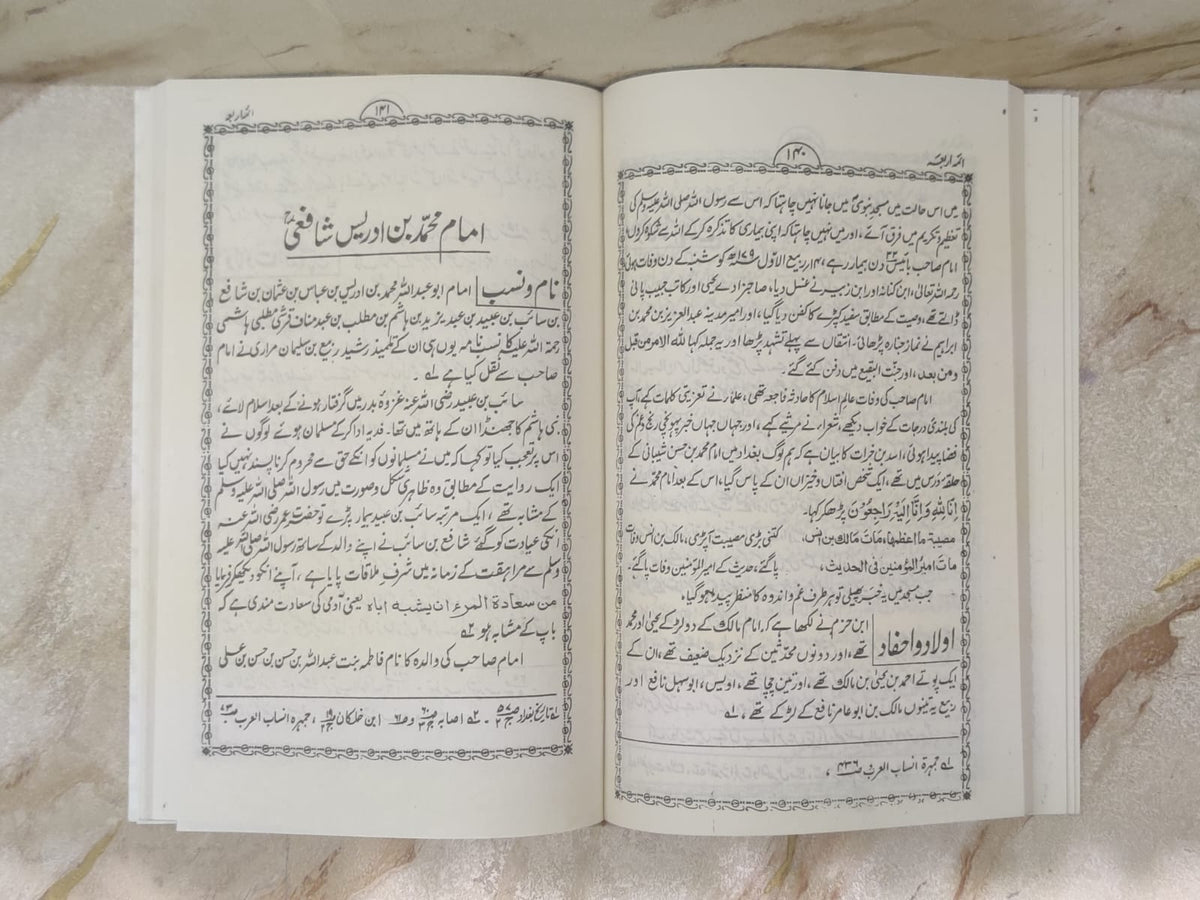 ائمہ اربعہ
۱۴۰
میں اس حالت میں مسجد نبویؐ میں جانا نہیں چاہتا کہ اس سے رسول اللہ صلی اللہ علیہ وسلم کی
تعظیم و تکریم میں فرق آئے، اور میں نہیں چاہتا کہ اپنی بیماری کا تذکرہ کر کے اللہ سے شکوہ کروں،
امام صاحب بائیس ۲۲ دن بیمار رہے، ۱۴ ربیع الاول ۱۷۹ھ کو شنبہ کے دن وفات ہوئی
رحمہ اللہ تعالیٰ، ابن کنانہ اور ابن زبیر نے غسل دیا، صاحبزادے یحییٰ اور کاتب حبیب پانی
ڈالتے تھے، وصیت کے مطابق سفید کپڑے کا کفن دیا گیا، اور امیر مدینہ عبدالعزیز بن محمد بن
ابراہیم نے نماز جنازہ پڑھائی۔ انتقال سے پہلے تشہد پڑھا اور یہ جملہ کہا للہ الامر من قبل
ومن بعد، اور جنت البقیع میں دفن کئے گئے۔
امام صاحب کی وفات عالم اسلام کا حادثۂ فاجعہ تھی، علماء نے تعزیتی کلمات کہے آپ
کی بلندی درجات کے خواب دیکھے، شعراء نے مرثیے کہے، اور جہاں جہاں خبر پہونچی رنج و غم کی
فضا پیدا ہوئی، اسد بن فرات کا بیان ہے کہ ہم لوگ بغداد میں امام محمد بن حسن شیبانی کے
حلقۂ درس میں تھے، ایک شخص افتاں و خیزاں ان کے پاس گیا، اس کے بعد امام محمد نے
اِنَّا لِلّٰہِ وَ اِنَّا اِلَیْہِ رَاجِعُوْنَ پڑھ کر کہا۔
مصیبة ما اعظمها، مَاتَ مَالِك بن انس، کتنی بڑی مصیبت آ پڑی، مالک بن انس وفات
مات امیر المؤمنین فی الحدیث، پا گئے، حدیث کے امیر المؤمنین وفات پا گئے۔
جب مسجد میں یہ خبر پھیلی تو ہر طرف غم و اندوہ کا منظر پیدا ہو گیا،
اولاد و احفاد ابن حزم نے لکھا ہے کہ امام مالک کے دو لڑکے یحییٰ اور محمد
تھے، اور دونوں محدثین کے نزدیک ضعیف تھے، ان کے
ایک پوتے احمد بن یحییٰ بن مالک تھے، اور تین چچا تھے، اویس، ابو سہل نافع اور
ربیع یہ تینوں مالک بن ابو عامر نافع کے لڑکے تھے، ۱؎
۱؎ جمہرۃ انساب العرب ص ۴۳۶،
ائمہ اربعہ
۱۴۱
امام محمّد بن ادریس شافعیؒ
نام و نسب امام ابو عبداللہ محمد بن ادریس بن عباس بن عثمان بن شافع
بن سائب بن عبید بن عبد یزید بن ہاشم بن مطلب بن عبد مناف قرشی مطلبی ہاشمی
رحمۃ اللہ علیہ کا نسب نامہ یوں ہی ان کے تلمیذ رشید ربیع بن سلیمان مرادی نے امام
صاحب سے نقل کیا ہے ۱؎۔
سائب بن عبید رضی اللہ عنہ غزوۂ بدر میں گرفتار ہونے کے بعد اسلام لائے،
بنی ہاشم کا جھنڈا ان کے ہاتھ میں تھا۔ فدیہ ادا کر کے مسلمان ہوئے لوگوں نے
اس پر تعجب کیا تو کہا کہ میں نے مسلمانوں کو انکے حق سے محروم کرنا پسند نہیں کیا
ایک روایت کے مطابق وہ ظاہری شکل و صورت میں رسول اللہ صلی اللہ علیہ وسلم
کے مشابہ تھے، ایک مرتبہ سائب بن عبید بیمار پڑے تو حضرت عمر رضی اللہ عنہ
انکی عیادت کو گئے شافع بن سائب نے اپنے والد کے ساتھ رسول اللہ صلی اللہ علیہ
وسلم سے مراہقت کے زمانہ میں شرف ملاقات پایا ہے، آپ نے انکو دیکھ کر فرمایا
من سعادة المرء ان یشبه اباہ یعنی آدمی کی سعادت مندی ہے کہ
باپ کے مشابہ ہو ۲؎
امام صاحب کی والدہ کا نام فاطمہ بنت عبداللہ بن حسن بن حسن بن علی
۱؎ تاریخ بغداد ص ۵۷ ج ۲۔ ۲؎ اصابہ ج ۳ ابن خلکان ج ۲، جمہرہ انساب العرب ص ۷۳